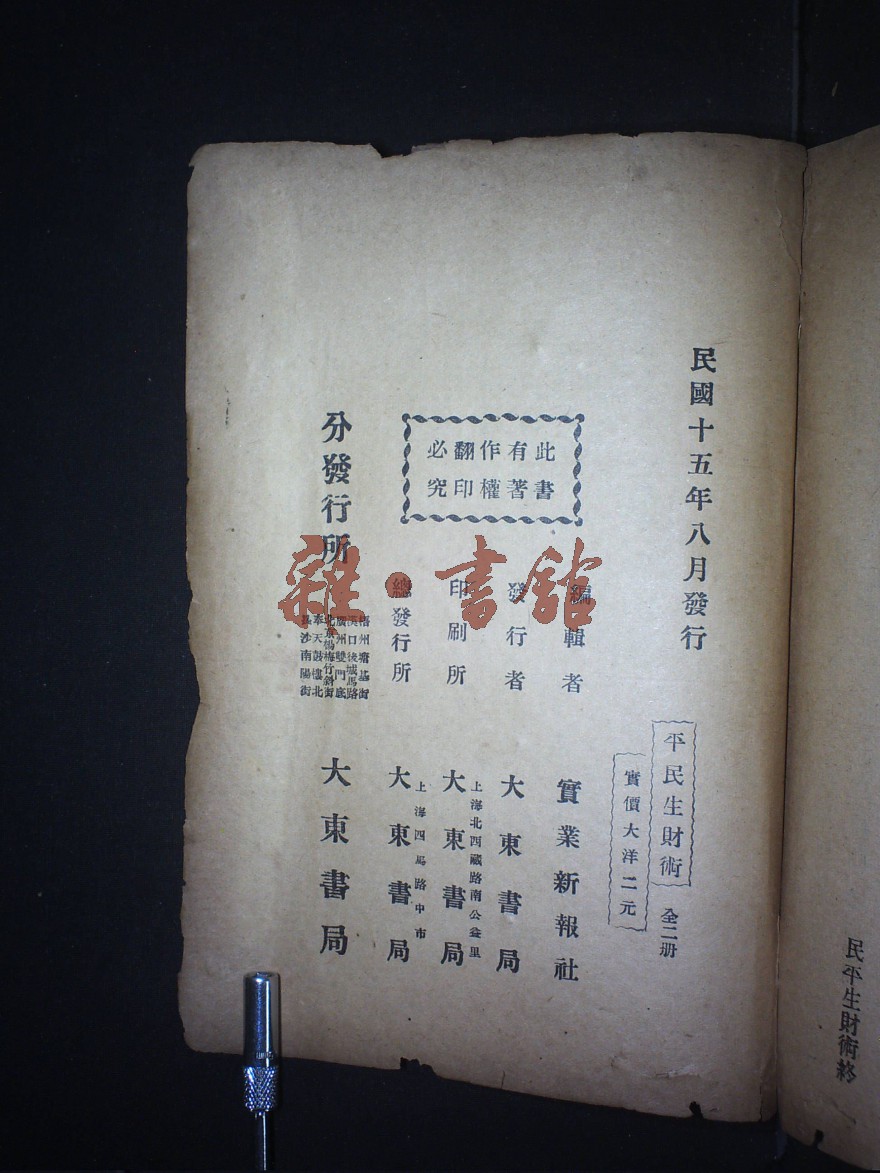 民平生財術終
民國十五年八月發行
平民生財術
全二册
實價大洋二元
此書
有著
作權
翻印
必究
編輯者
實業新報社
發行者
大東書局
印刷所
上海北西藏路南公益里
大東書局
總發行所
上海四馬路中市
大東書局
分發行所
漢口後城馬路
廣州雙門底
北京楊梅竹斜街
奉天鼓樓北
長沙南陽街
大東書局
雜·書館